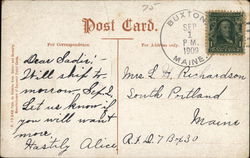 70¢
Post Card.
For Correspondence.
For Address only.
BUXTON
SEP
1
P.M.
1909
MAINE
Dear Sadie:-
Will skip to-
morrow, Sep. 2,
Let us know if
you will want
more.
Hastily Alice,
Mrs L H Richardson
South Portland
Maine
R.F.D. 7 Box 30.